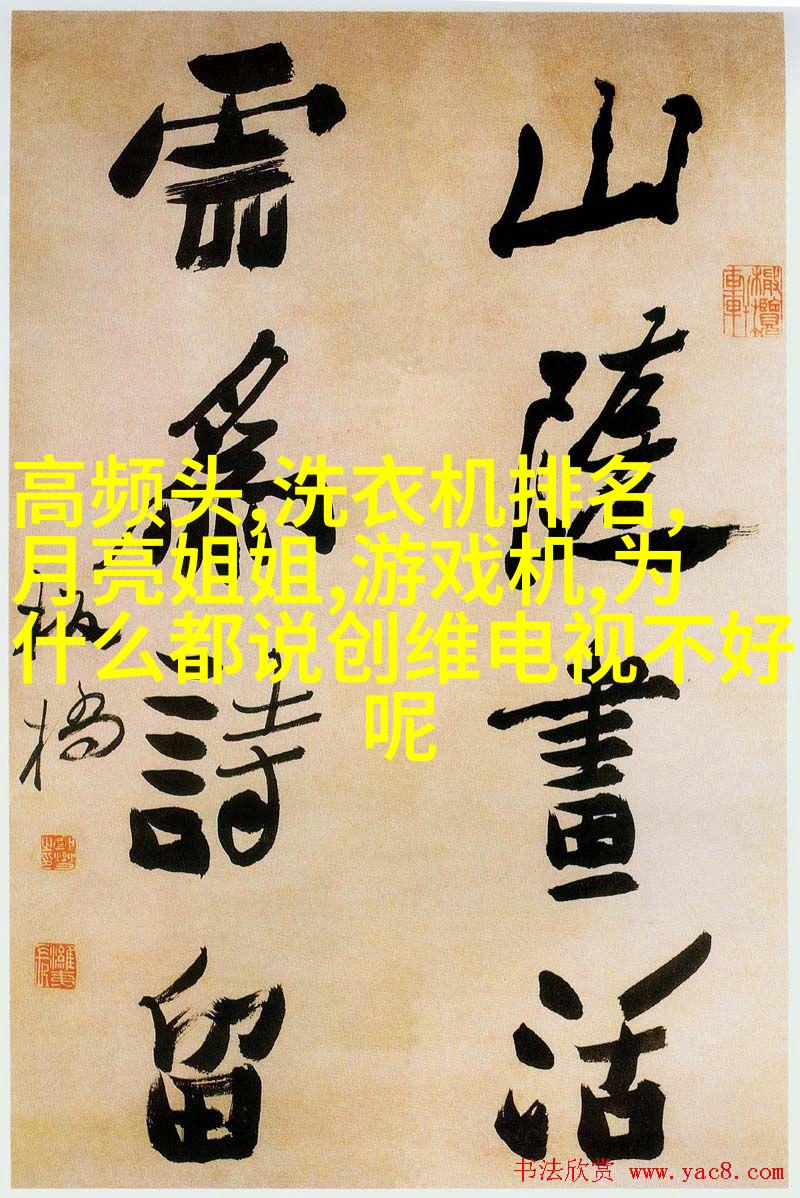 山隨畫活
雲爲詩留
板橋
高频头,洗衣机排名,
月亮姐姐,游戏机,为
什么都说创维电视不好
呢
书法欣赏 www.yac8.com